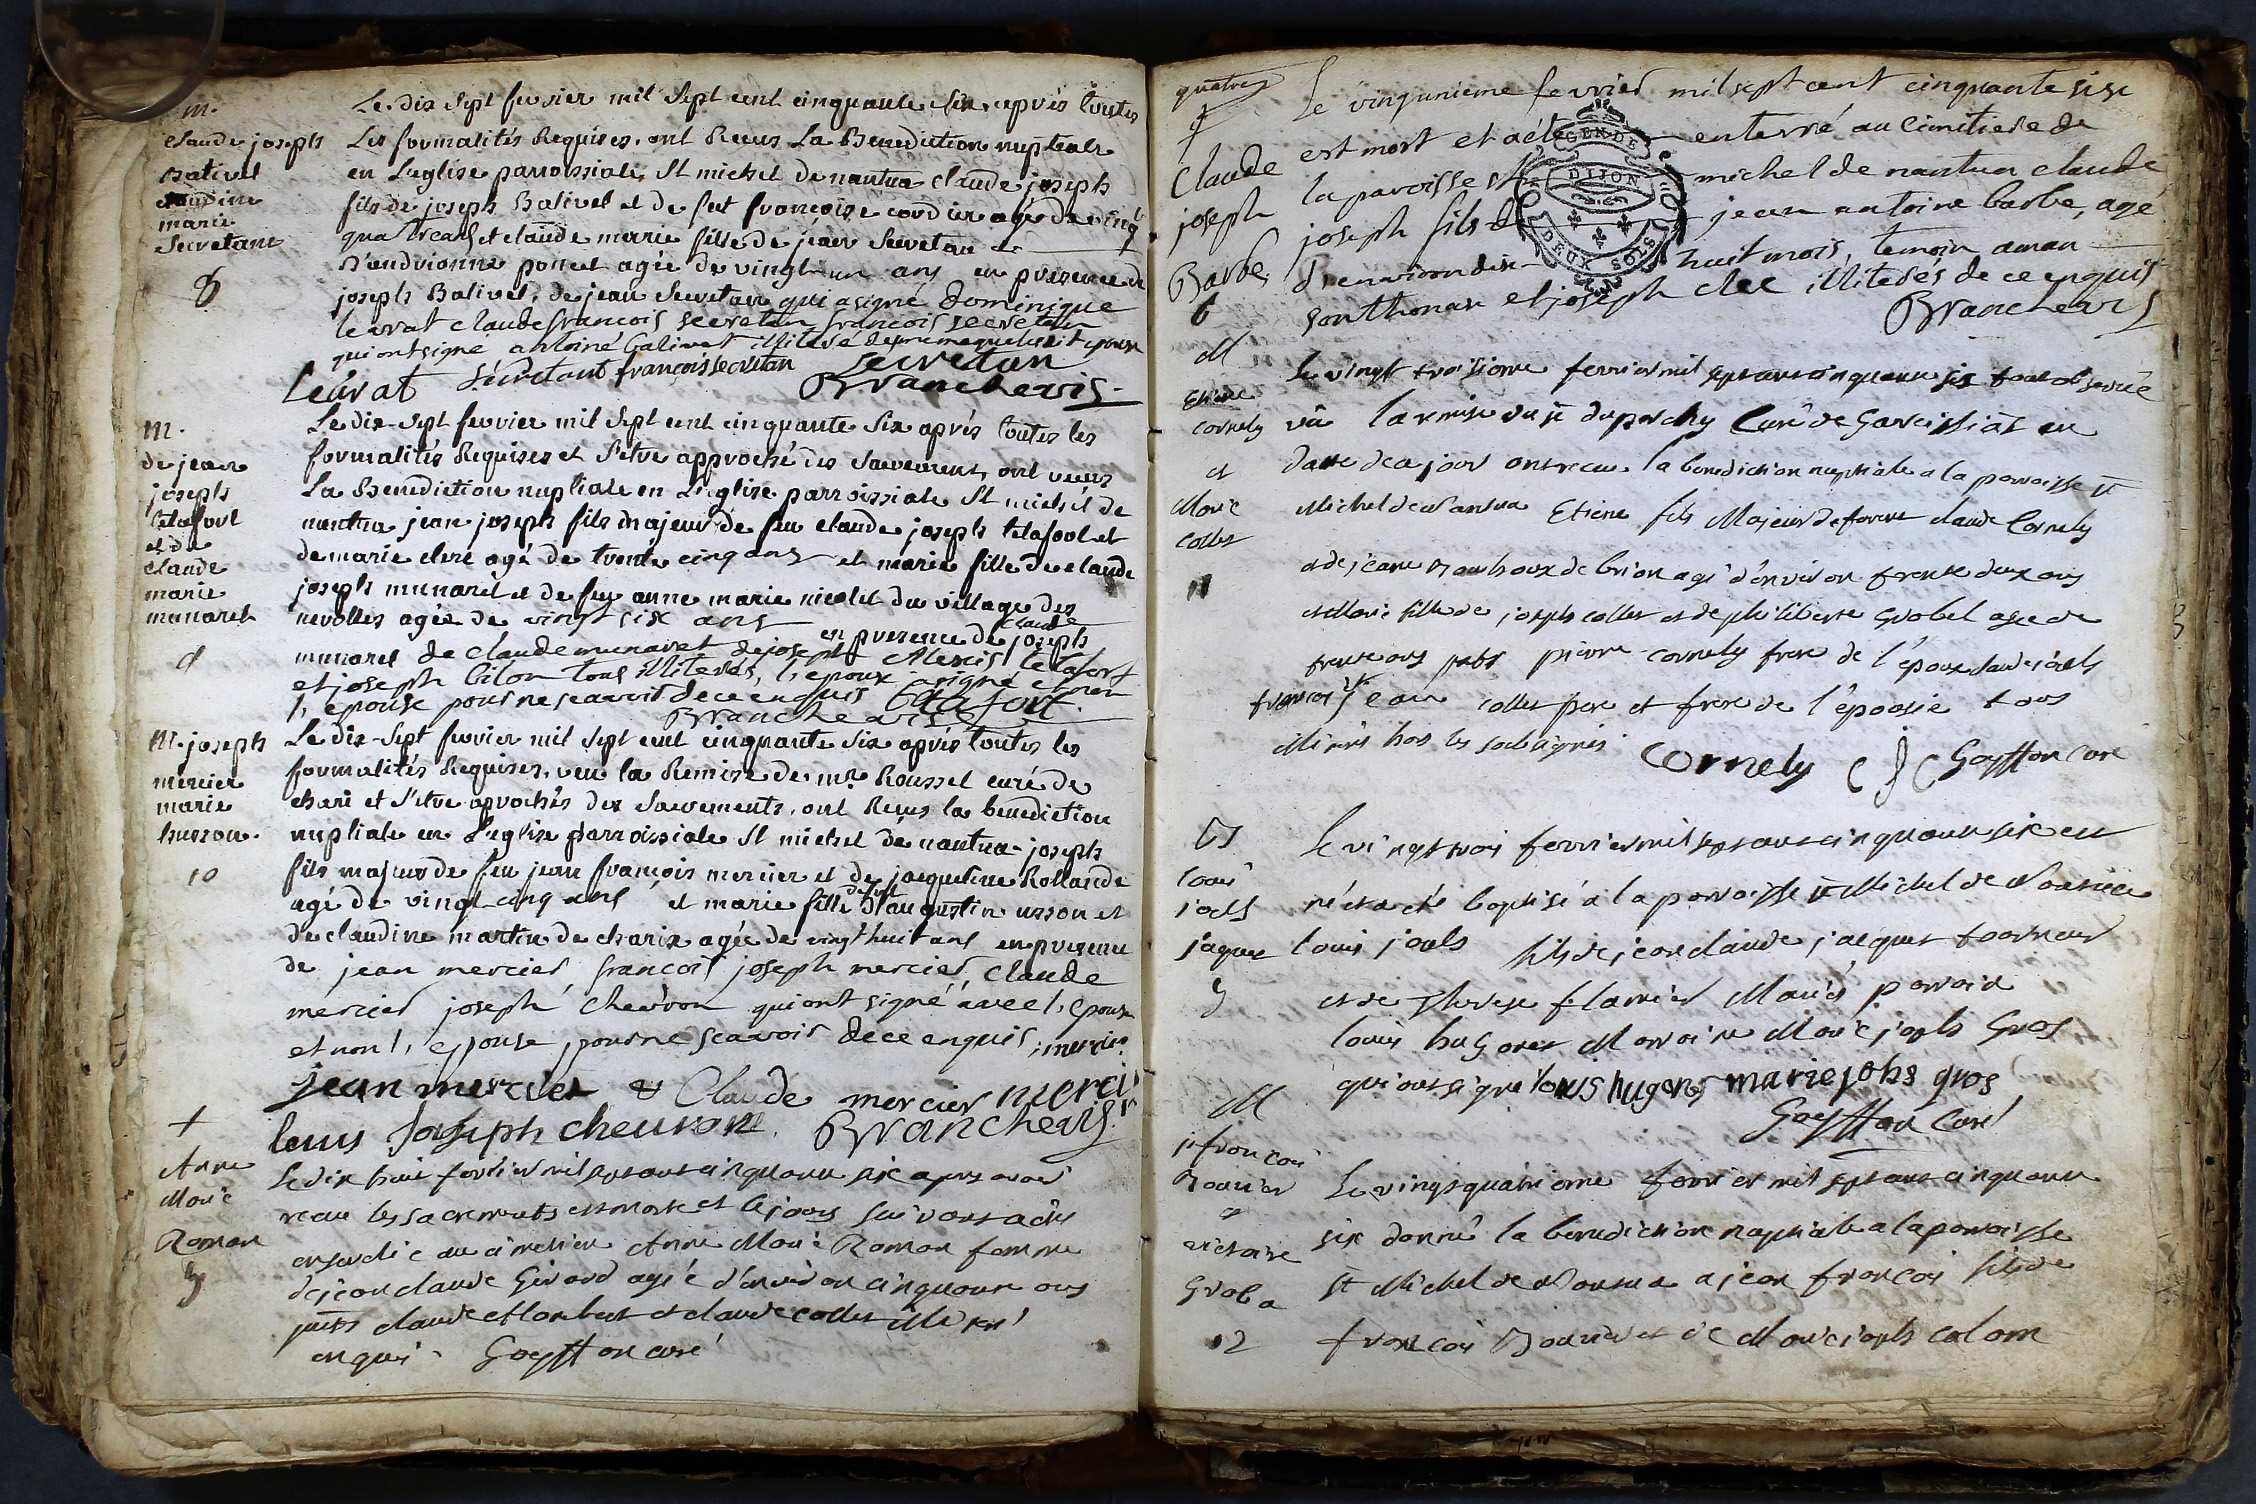 m.
claude joseph
balivet
claudine
marie
Secretane
8
Le dix sept fevrier mil sept cent cinquante six apres toutes
Les formalités Requises, ont Recus La Benediction nuptiale
en L'eglise parroissiale St michel de nantua claude joseph
fils de joseph Balivet et de feu francoise cordier agé de vingt
quatre ans et claude marie fille de jean Secretan et
D'andrionne poncet agée de vingt un ans en presence de
joseph Balivet, de jean Secretan qui a signé Dominique
levrat claude francois secretan francois secretan
qui ont signé antoine balivet
levrat Secretant françois secretan Secretan
Branchevis
m.
de jean
joseph
letafort
et de
claude
marie
munaret
9
Le dix-sept fevrier mil sept cent cinquante six aprés toutes les
formalités Requises et s'etre approché des Sacrements, ont recus
La Benediction nuptiale en L'eglise parroissiale St michel de
nantua jean joseph fils majeur de feu claude joseph letafort et
de marie clere agé de trente cinq ans et marie fille de claude
joseph munaret et de feu anne marie nicolet du village des
nerolles agée de vingt six ans en presence de claude joseph
munaret de claude munaret de joseph Alexis letafort
et joseph bilon tous illiterés, l'epoux a signé et non
l'epouse pour ne scavoir de ce enquis letafort
Branchevis
m. joseph
mercier
marie
husson.
10
Le dix-sept fevrier mil sept cent cinquante six aprés toutes les
formalités Requises, veu la Remise de mr. Roussel curé de
charix et s'etre aprochés des Sacrements, ont Recus la benediction
nuptiale en L'eglise parroissiale St michel de nantua joseph
fils majeur de feu jean françois mercier et de jacqueline Rollande
agé de vingt cinq ans et marie fille de feu d'augustin usson et
de claudine martin de charix agée de vingt huit ans en presence
de jean mercier francois joseph mercier, claude
mercier joseph chevron qui ont signé avec l'epoux
et non l'epouse pour ne scavoir de ce enquis, mercier
jean mercier & Claude mercier merci
louis Joseph cheuron. Branchevis
+
Anne
Marie
Roman
5
Le dix huit fevrier mil sept cent cinquante six apres avoir
recu les sacrements est morte et le jour suivant a été
ensevelie au cimetiere Anne Marie Roman femme
de jean claude Girard agée d'environ cinquante ans
pnts claude Humbert et claude collet illiterés
enquis. Goyffon curé
quatre
+
Claude
joseph
Barbe
6
Le vingtunième fevrier mil sept cent cinquante six
est mort et a été enterré au cimitiere de
la paroisse St michel de nantua claude
joseph fils de jean antoine barbe, agé
D'environ dix huit mois, temoin aman
sonthonax et joseph clec illiterés de ce enquis
Branchevis
GEN DE
DIJON
DEUX SOLS
M
Etiene
cornely
et
Marie
collet
11
Le vingt troisieme fevrier mil sept cent cinquante six tout observé
vû la remise du Sr duparchy Curé de Garcissiat en
datte de ce jour ont recu la benediction nuptiale a la paroisse St
Michel de Nantua Etiene fils Majeur de feu claude Cornely
et de jeane de brion agé d'environ trente deux ans
et Marie fille de joseph collet et de philiberte Grobel agée de
trente ans pnts pierre cornely frere de l'epoux claude joseph
francois jean collet pere et frere de l'epouse tous
illiterés hors les soubsignés Cornely C J C Goyffon curé
B
louis
joseph
jaquet
9
Le vingt trois fevrier mil sept cent cinquante six est
né et a été baptisé a la paroisse St Michel de Nantua
louis joseph fils de jean claude jacquet tourneur
et de Therese flamier Mariés parrain
louis hugonet Marraine Marie joseph Gros
qui ont signé louis hugonet marie johs gros
Goyffon Curé
M
j francois
Bouvier
et
victoire
Groba
12
Le vingt quatrieme fevrier mil sept cent cinquante
six donné la benediction nuptiale a la paroisse
St Michel de Nantua a jean francois fils de
francois Bouvier et de Marie joseph colom